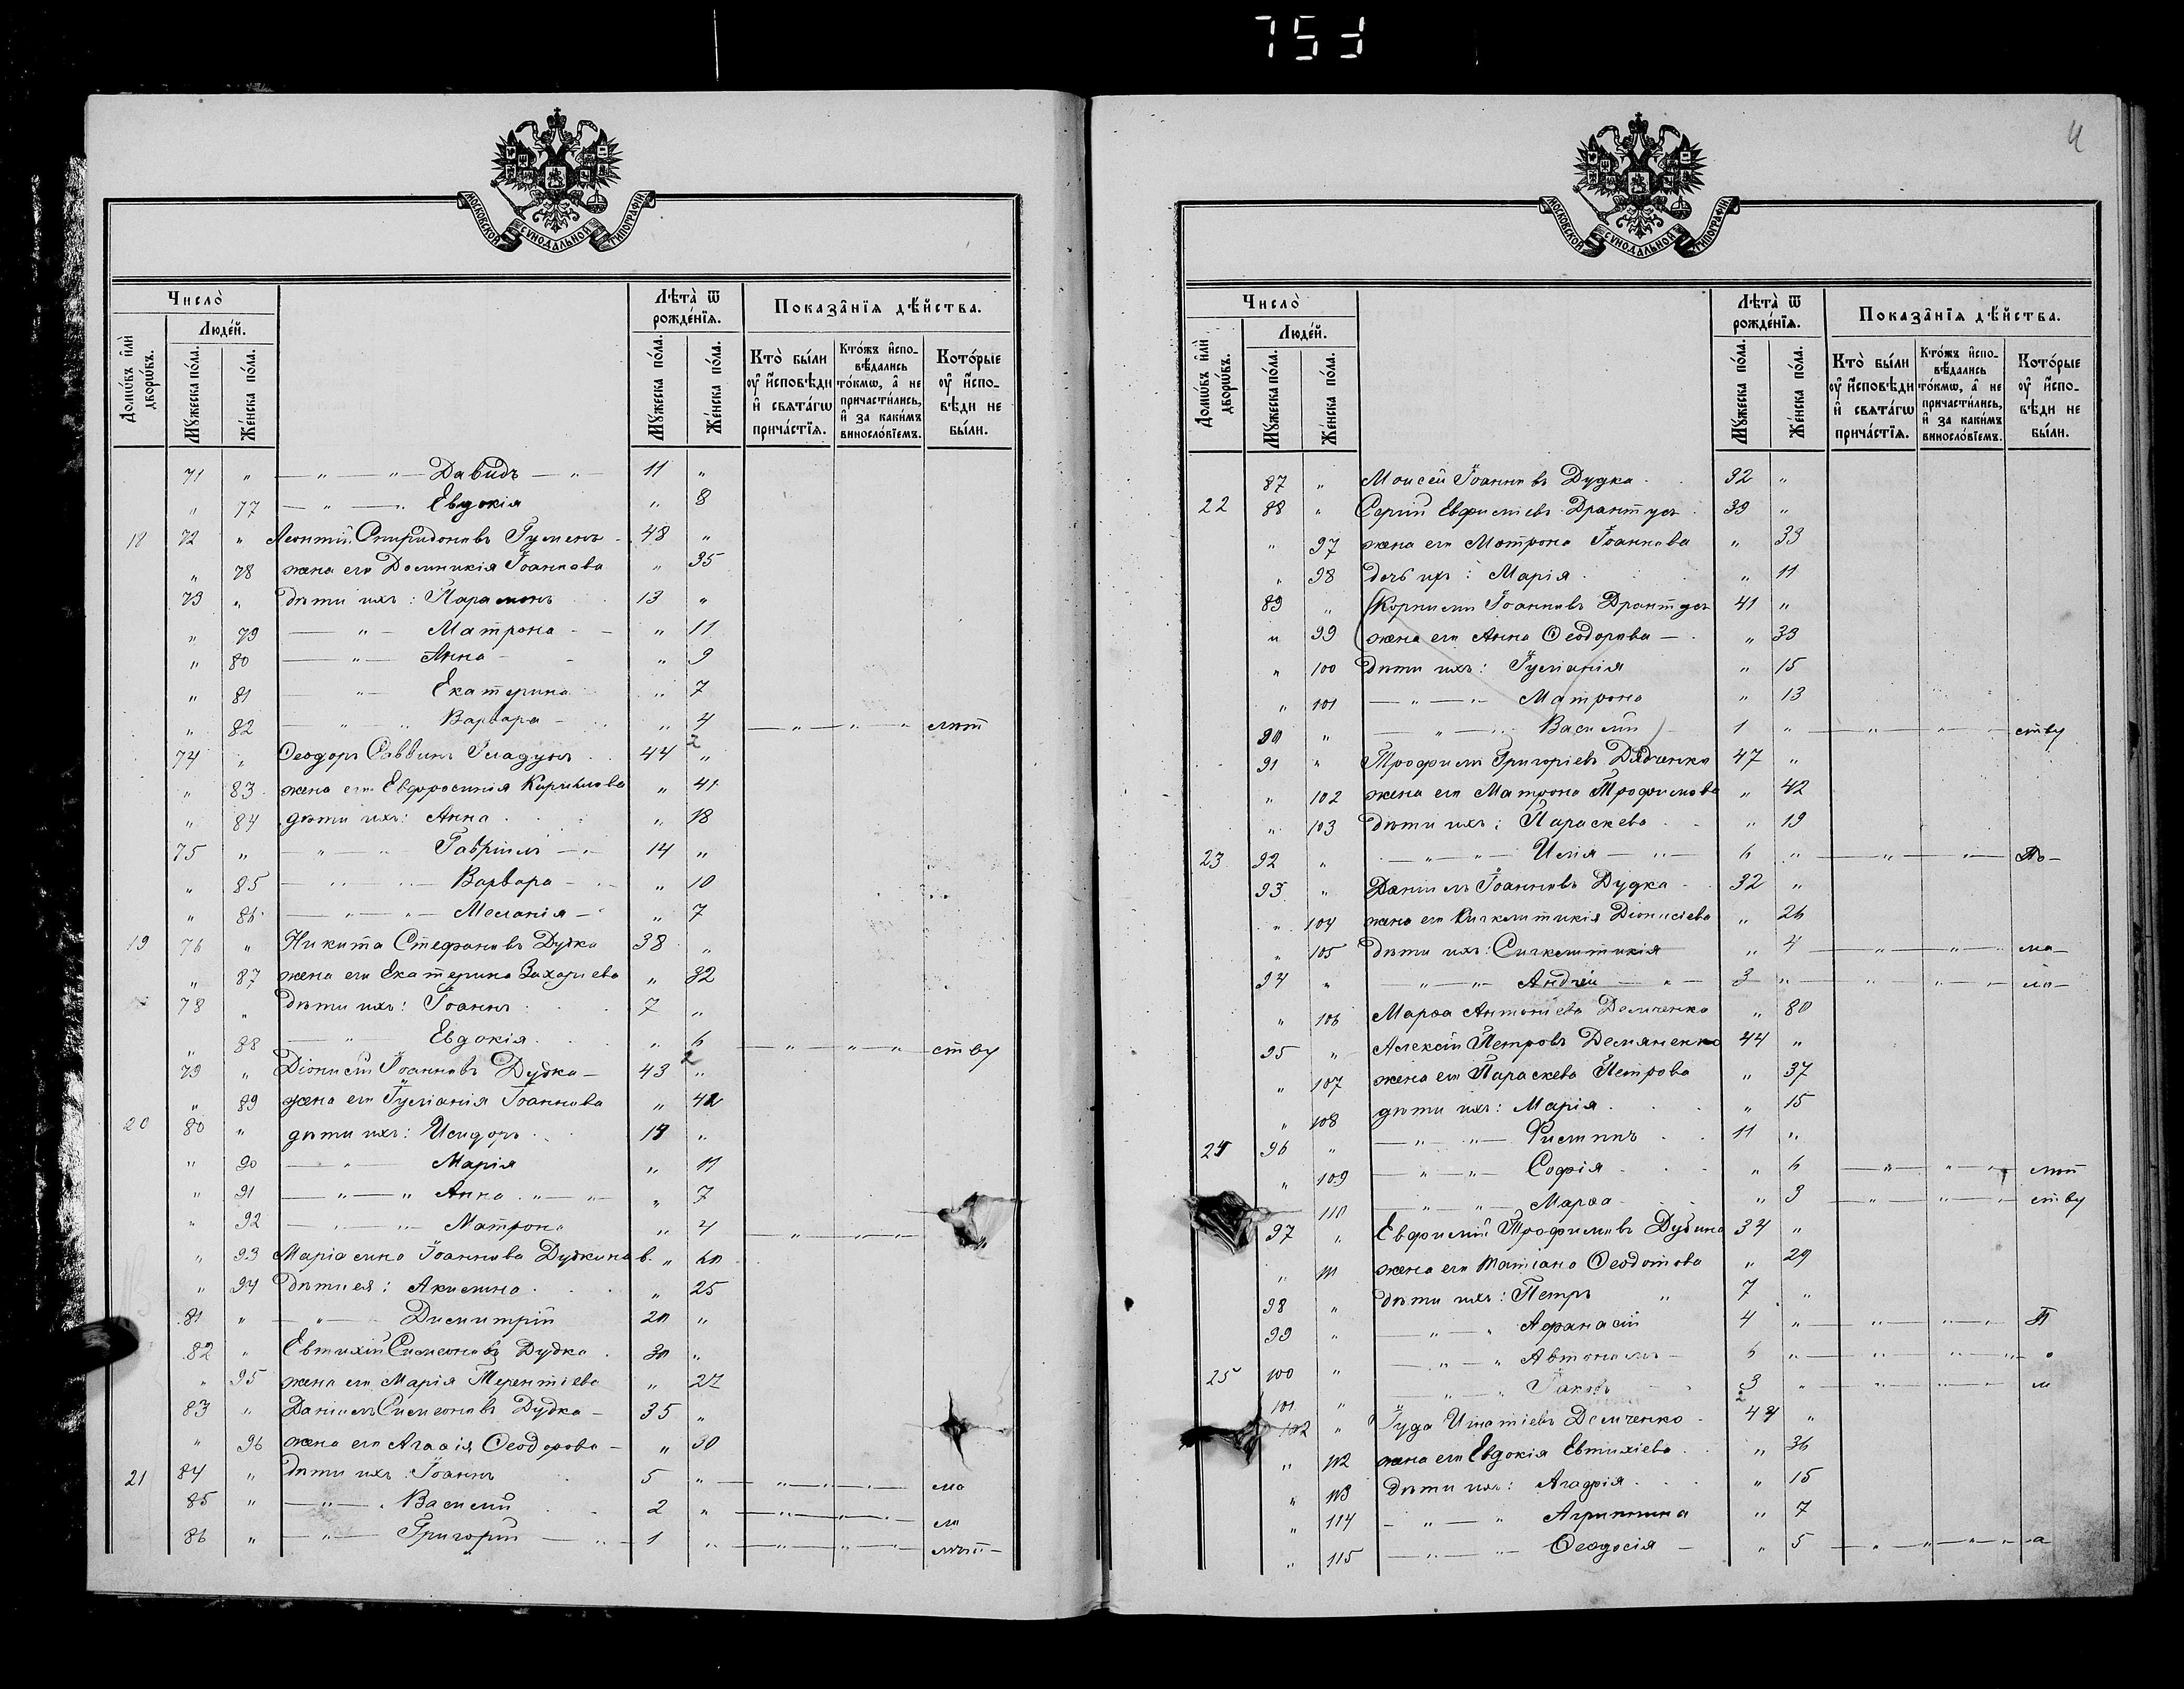 753
4
МОСКОВСКОЙ СѴНОДАЛЬНОЙ ТИПОГРАФІИ
Число̀
Людéй.
Домѡ́въ и҆лѝ дворѡ́въ.
Мꙋ́жеска по́ла.
Жéнска по́ла.
Лѣта̀ ѿ рожде́нїѧ.
Мꙋ́жеска по́ла.
Жéнска по́ла.
Показа̑нїѧ дѣ́йства.
Кто̀ бы́ли оу҆ и҆сповѣ́ди и҆ свѧта́гѡ прича́стїѧ.
Кто́жъ и҆сповѣ́дались то́кмѡ, а҆ не причасти́лись, и҆ за каки́мъ винословїемъ.
Кото́рые оу҆ и҆сповѣ́ди не бы́ли.
71 " — " — " — Давидъ — " — 11 "
" 77 — " — " Евдокія " 8
18 72 " Леонтій Спиридоновъ Гуменъ 48 "
" 78 жена его Домникія Іоаннова " 35
73 " дѣти ихъ: Парамонъ 13 "
" 79 — " — Матрона — " 11
" 80 — " — Анна — " 9
" 81 — " — Екатерина " 7
" 82 — " " Варвара — " 4 — " — " — " лѣт
74 " Ѳеодоръ Саввинъ Гладунъ 44 2 "
" 83 жена его Евфросинія Кириллова " 41
" 84 дѣти ихъ: Анна " 18
75 " — " — " Гавріилъ — 14 "
" 85 — " — " — Варвара — " 10
" 86 — " — " — Меланія — " 7
19 76 " Никита Стефановъ Дудка 38 "
" 87 жена его Екатерина Захаріева " 32
78 " дѣти ихъ: Іоаннъ 7 "
" 88 — " — Евдокія " 6 — " — " — " ству
79 " Діонисій Іоанновъ Дудка — 43 2 "
" 89 жена его Іуліанія Іоаннова " 42
20 80 " дѣти ихъ: Исидоръ 18 "
" 90 — " — Марія " 11
" 91 — " — " Анна " — " 7
" 92 — " — " Матрона " 4 " — " —
" 93 Маріамна Іоаннова Дудкина в. " 60
" 94 дѣти ея: Акилина " 25
81 " — " — Димитрій 20 "
82 " Евтихій Симеоновъ Дудка 30 "
" 95 жена его Марія Терентіева " 27
83 " Даніилъ Симеоновъ Дудка — 35 "
" 96 жена его Агаѳія Ѳеодорова — " 30
21 84 " дѣти ихъ: Іоаннъ 5 " — " — " — ма
85 " — " — " Василій 2 " — " — " — ло
86 " — " — Григорій — " 1 " — " — " — лѣт —
МОСКОВСКОЙ СѴНОДАЛЬНОЙ ТИПОГРАФІИ
Число̀
Людéй.
Домѡ́въ и҆лѝ дворѡ́въ.
Мꙋ́жеска по́ла.
Жéнска по́ла.
Лѣта̀ ѿ рожде́нїѧ.
Мꙋ́жеска по́ла.
Жéнска по́ла.
Показа̑нїѧ дѣ́йства.
Кто̀ бы́ли оу҆ и҆сповѣ́ди и҆ свѧта́гѡ прича́стїѧ.
Кто́жъ и҆сповѣ́дались то́кмѡ, а҆ не причасти́лись, и҆ за каки́мъ винословїемъ.
Кото́рые оу҆ и҆сповѣ́ди не бы́ли.
87 " Моисей Іоанновъ Дудка 32 "
22 88 " Сергій Евфиміевъ 39 "
" 97 жена его Матрона Іоаннова " 33
" 98 дочь ихъ: Марія " 11
89 " Корнилій Іоанновъ 41 "
" 99 жена его Анна Ѳеодорова — " 33
" 100 дѣти ихъ: Іуліанія " 15
" 101 — " — " Матрона " 13
90 " — " — " Василій 1 " — " — " — ству
91 " Трофимъ Григоріевъ Дядченко 47 "
" 102 жена его Матрона Трофимова " 42
" 103 дѣти ихъ: Параскева " 19
23 92 " — " — " — Илія — " — 6 " — " — " — По —
93 " Даніилъ Іоанновъ Дудка 32 "
" 104 жена его Синклитикія Діонисіева " 26
" 105 дѣти ихъ: Синклитикія " 4 — " — " ма —
94 " — " — " — Андрей — " — 3 " — " — " — ло —
" 106 Марѳа Антоніева Демченко " 80
95 " Алексій Петровъ Демяненко 44 "
" 107 жена его Параскева Петрова " 37
" 108 дѣти ихъ: Марія " 15
24 96 " — " — " — Филиппъ 11 "
" 109 — " — " — Софія " 6 — " — " — лѣт
" 110 — " — " — Марѳа " 3 — " — " — ству
97 " Евфимій Трофимовъ Дубина 34 "
" 111 жена его Татіана Ѳеодотова " 29
98 " дѣти ихъ: Петръ " 7 "
99 " — " — " Афанасій 4 " — " — " — П
25 100 " — " — " Автономъ — 6 " — " — " — о
101 " — " — " Іаковъ 3 " — " — " — м
102 " Іуда Игнатіевъ Демченко 2 44 "
" 112 жена его Евдокія Евтихіева " 36
" 113 дѣти ихъ: Агафія " 15
" 114 — " — " Агриппина " 7
" 115 — " — " Ѳеодосія — " 5 — " — " — " а